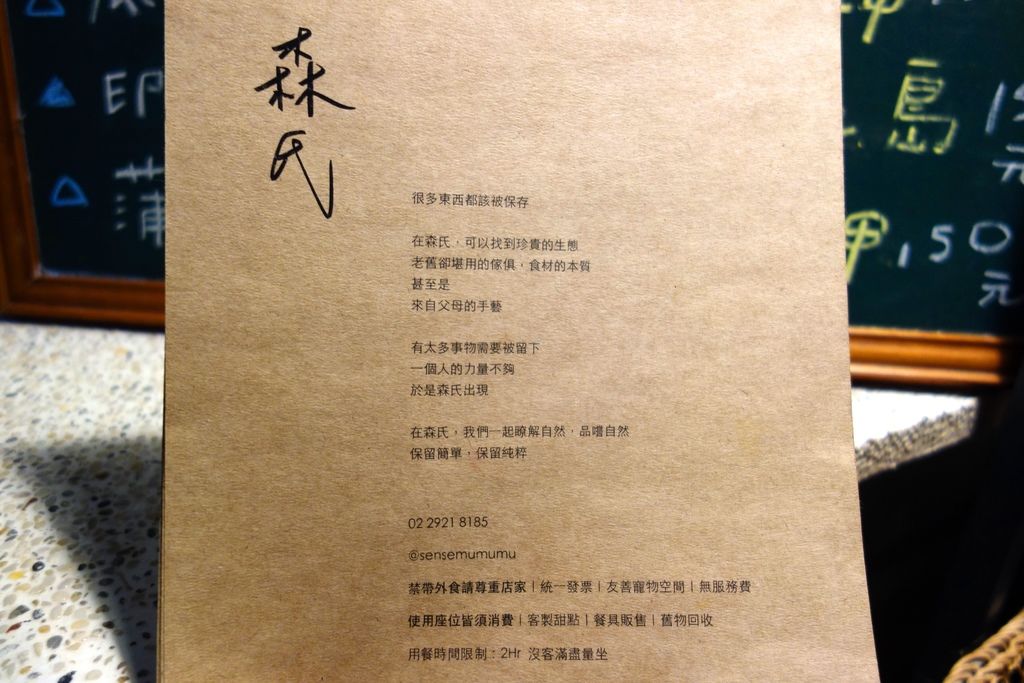 森氏
很多東西都該被保存
在森氏,可以找到珍貴的生態
老舊卻堪用的傢俱,食材的本質
甚至是
來自父母的手藝
有太多事物需要被留下
一個人的力量不夠
於是森氏出現
在森氏,我們一起瞭解自然,品嚐自然
保留簡單,保留純粹
02 2921 8185
@sensemumumu
禁帶外食請尊重店家 | 統一發票 | 友善寵物空間 | 無服務費
使用座位皆須消費 | 客製甜點 | 餐具販售 | 舊物回收
用餐時間限制:2Hr 沒客滿盡量坐
印
島
元
150
元